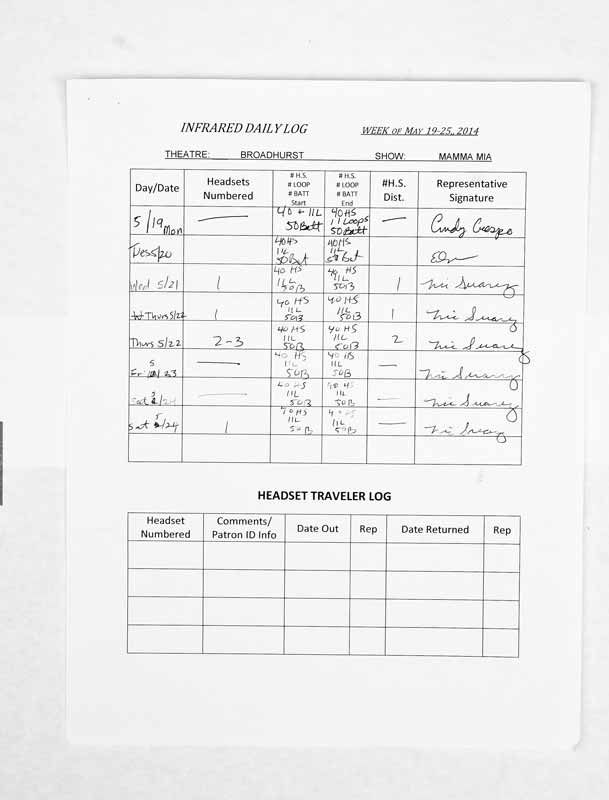 INFRARED DAILY LOG WEEK OF MAY 19-25, 2014
THEATRE: BROADHURST SHOW: MAMMA MIA
Day/Date Headsets Numbered # H.S. # LOOP # BATT Start # H.S. # LOOP # BATT End #H.S. Dist. Representative Signature
5/19 Mon — 40 + 11L 50Batt 40HS 11Loops 50Batt — Cindy Crespo
40HS 11L 50Bat 40HS 11L 50Bat
Wed 5/21 1 40 HS 11L 50B 40 HS 11L 50B 1 Nic Suarez
Thurs 5/22 1 40 HS 11L 50B 40 HS 11L 50B 1 Nic Suarez
Thurs 5/22 2-3 40 HS 11L 50B 40 HS 11L 50B 2 Nic Suarez
Fri 5/23 — 40 HS 11L 50B 40 HS 11L 50B — Nic Suarez
Sat 5/24 — 40 HS 11L 50B 40 HS 11L 50B — Nic Suarez
Sat 5/24 1 40 HS 11L 50B 40 HS 11L 50B — Nic Suarez
HEADSET TRAVELER LOG
Headset Numbered Comments/ Patron ID Info Date Out Rep Date Returned Rep